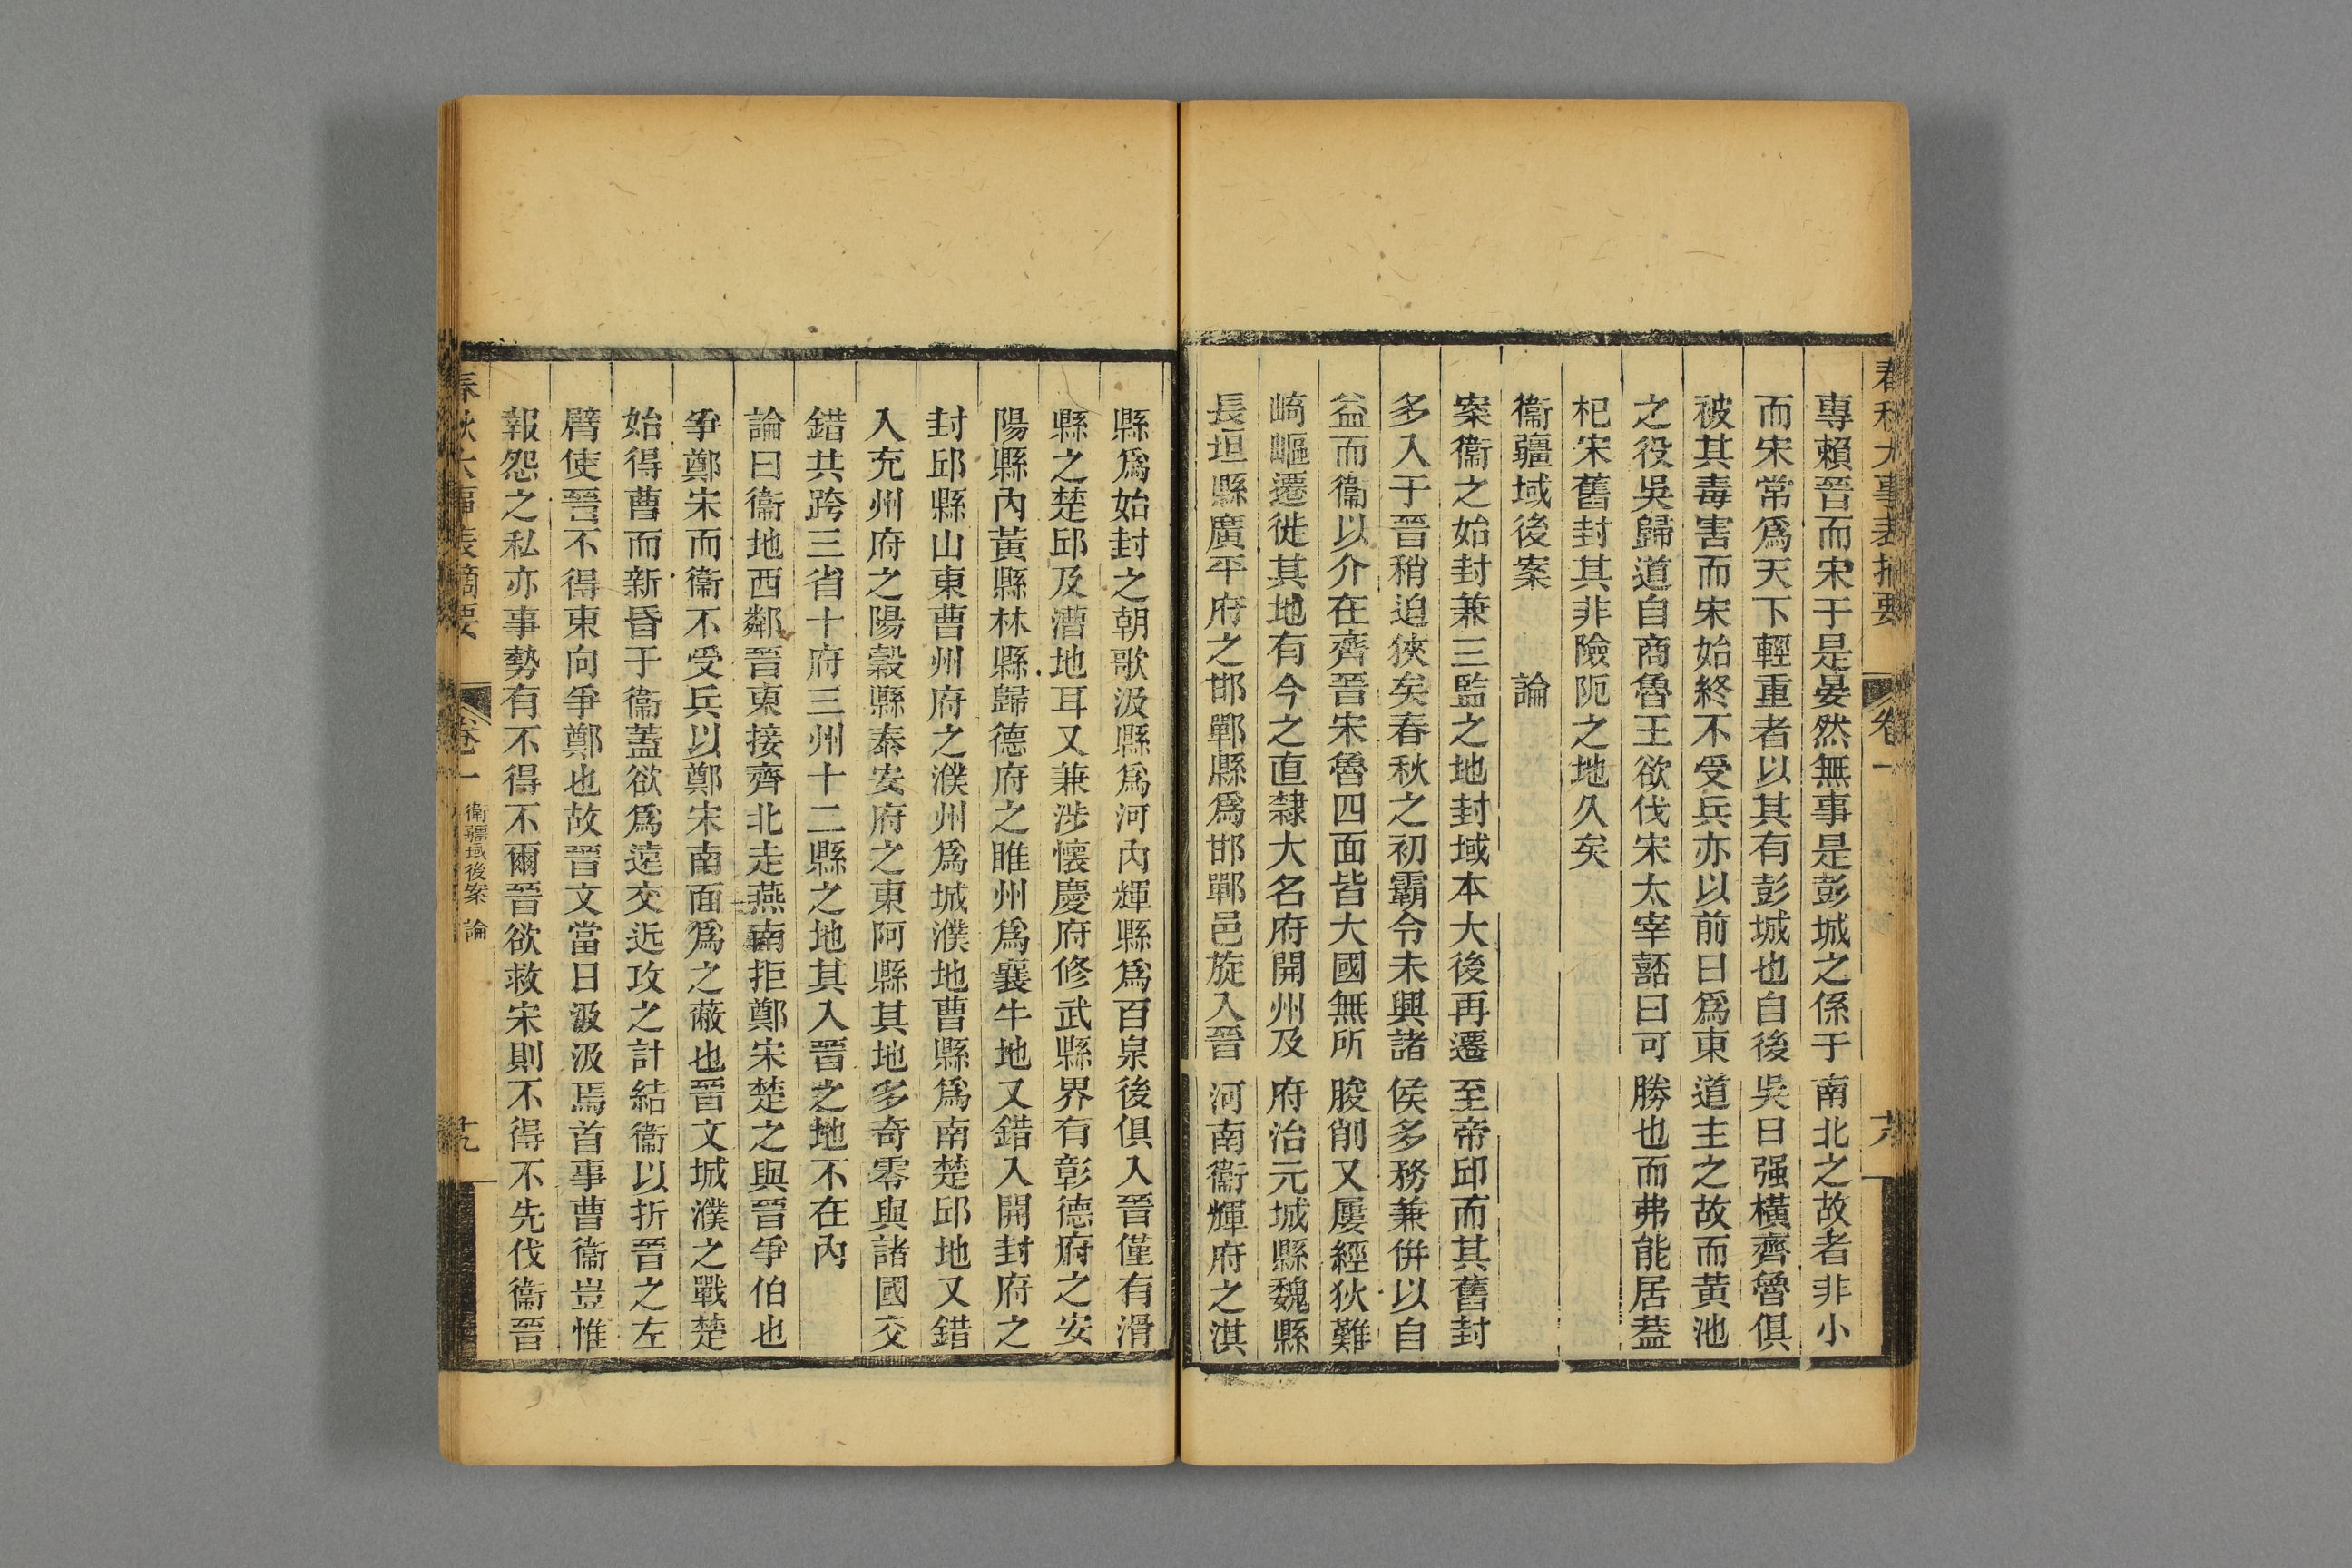 春秋大事表摘要 卷一 十八
專賴晉而宋于是晏然無事是彭城之係于南北之故者非小
而宋常爲天下輕重者以其有彭城也自後吳日强橫齊魯俱
被其毒害而宋始終不受兵亦以前日爲東道主之故而黃池
之役吳歸道自商魯王欲伐宋太宰嚭曰可勝也而弗能居葢
杞宋舊封其非險阨之地久矣
衞疆域後案 論
案衞之始封兼三監之地封域本大後再遷至帝邱而其舊封
多入于晉稍迫狹矣春秋之初霸令未興諸侯多務兼併以自
益而衞以介在齊晉宋魯四面皆大國無所朘削又屢經狄難
崎嶇遷徙其地有今之直隸大名府開州及府治元城縣魏縣
長垣縣廣平府之邯鄲縣爲邯鄲邑旋入晉河南衞輝府之淇
縣爲始封之朝歌汲縣爲河內輝縣爲百泉後俱入晉僅有滑
縣之楚邱及漕地耳又兼涉懷慶府修武縣界有彰德府之安
陽縣內黃縣林縣歸德府之睢州爲襄牛地又錯入開封府之
封邱縣山東曹州府之濮州爲城濮地曹縣爲南楚邱地又錯
入兗州府之陽穀縣泰安府之東阿縣其地多奇零與諸國交
錯共跨三省十府三州十二縣之地其入晉之地不在內
論曰衞地西鄰晉東接齊北走燕南拒鄭宋楚之與晉爭伯也
爭鄭宋而衞不受兵以鄭宋南面爲之蔽也晉文城濮之戰楚
始得曹而新昏于衞蓋欲爲遠交近攻之計結衞以折晉之左
臂使晉不得東向爭鄭也故晉文當日汲汲焉首事曹衞豈惟
報怨之私亦事勢有不得不爾晉欲救宋則不得不先伐衞晉
春秋大事表摘要 卷一 衞疆域後案 論 十九